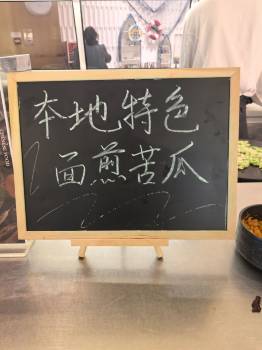 本地特色
面煎苦瓜